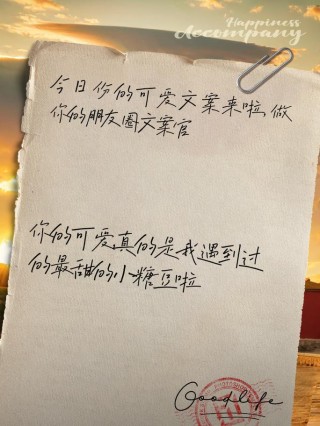 Happiness
Accompany
今日份的可爱文案来啦,做
你的朋友圈文案官
你的可爱真的是我遇到过
的最甜的小糖豆啦
Goodlife